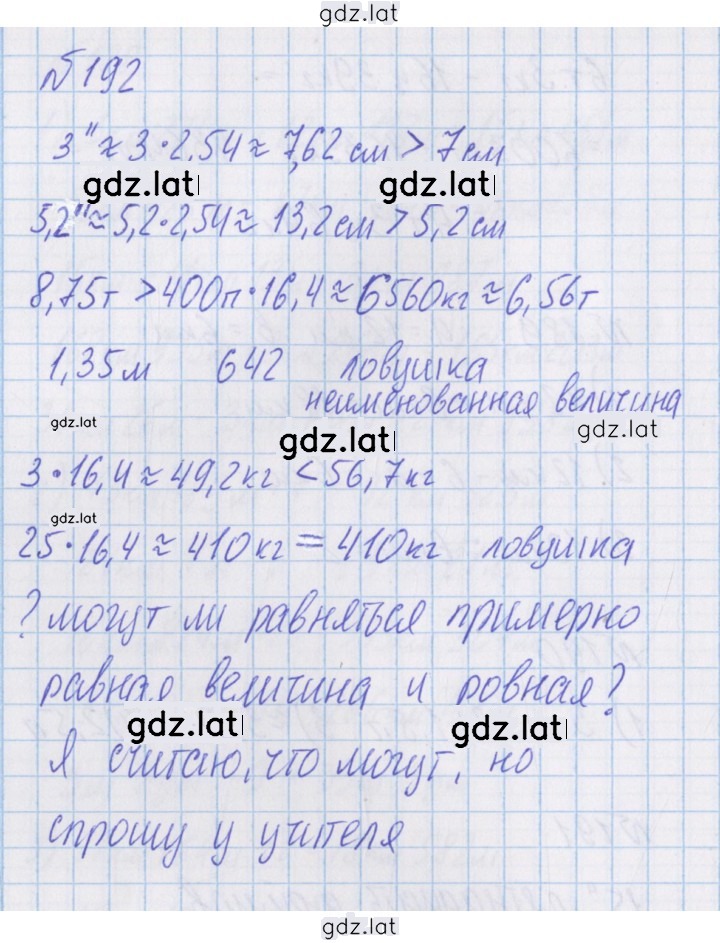 gdz.lat
№192
3" ≈ 3·2,54 ≈ 7,62 см > 7 см
gdz.lat gdz.lat
5,2" ≈ 5,2·2,54 ≈ 13,2 см > 5,2 см
8,75т > 400п·16,4 ≈ 6560кг ≈ 6,56т
1,35м 642 ловушка
неименованная величина
gdz.lat gdz.lat gdz.lat
3·16,4 ≈ 49,2кг < 56,7кг
gdz.lat
25·16,4 ≈ 410кг = 410кг ловушка
? могут ли равняться примерно
равная величина и ровная?
gdz.lat gdz.lat
Я считаю, что могут, но
спрошу у учителя
gdz.lat